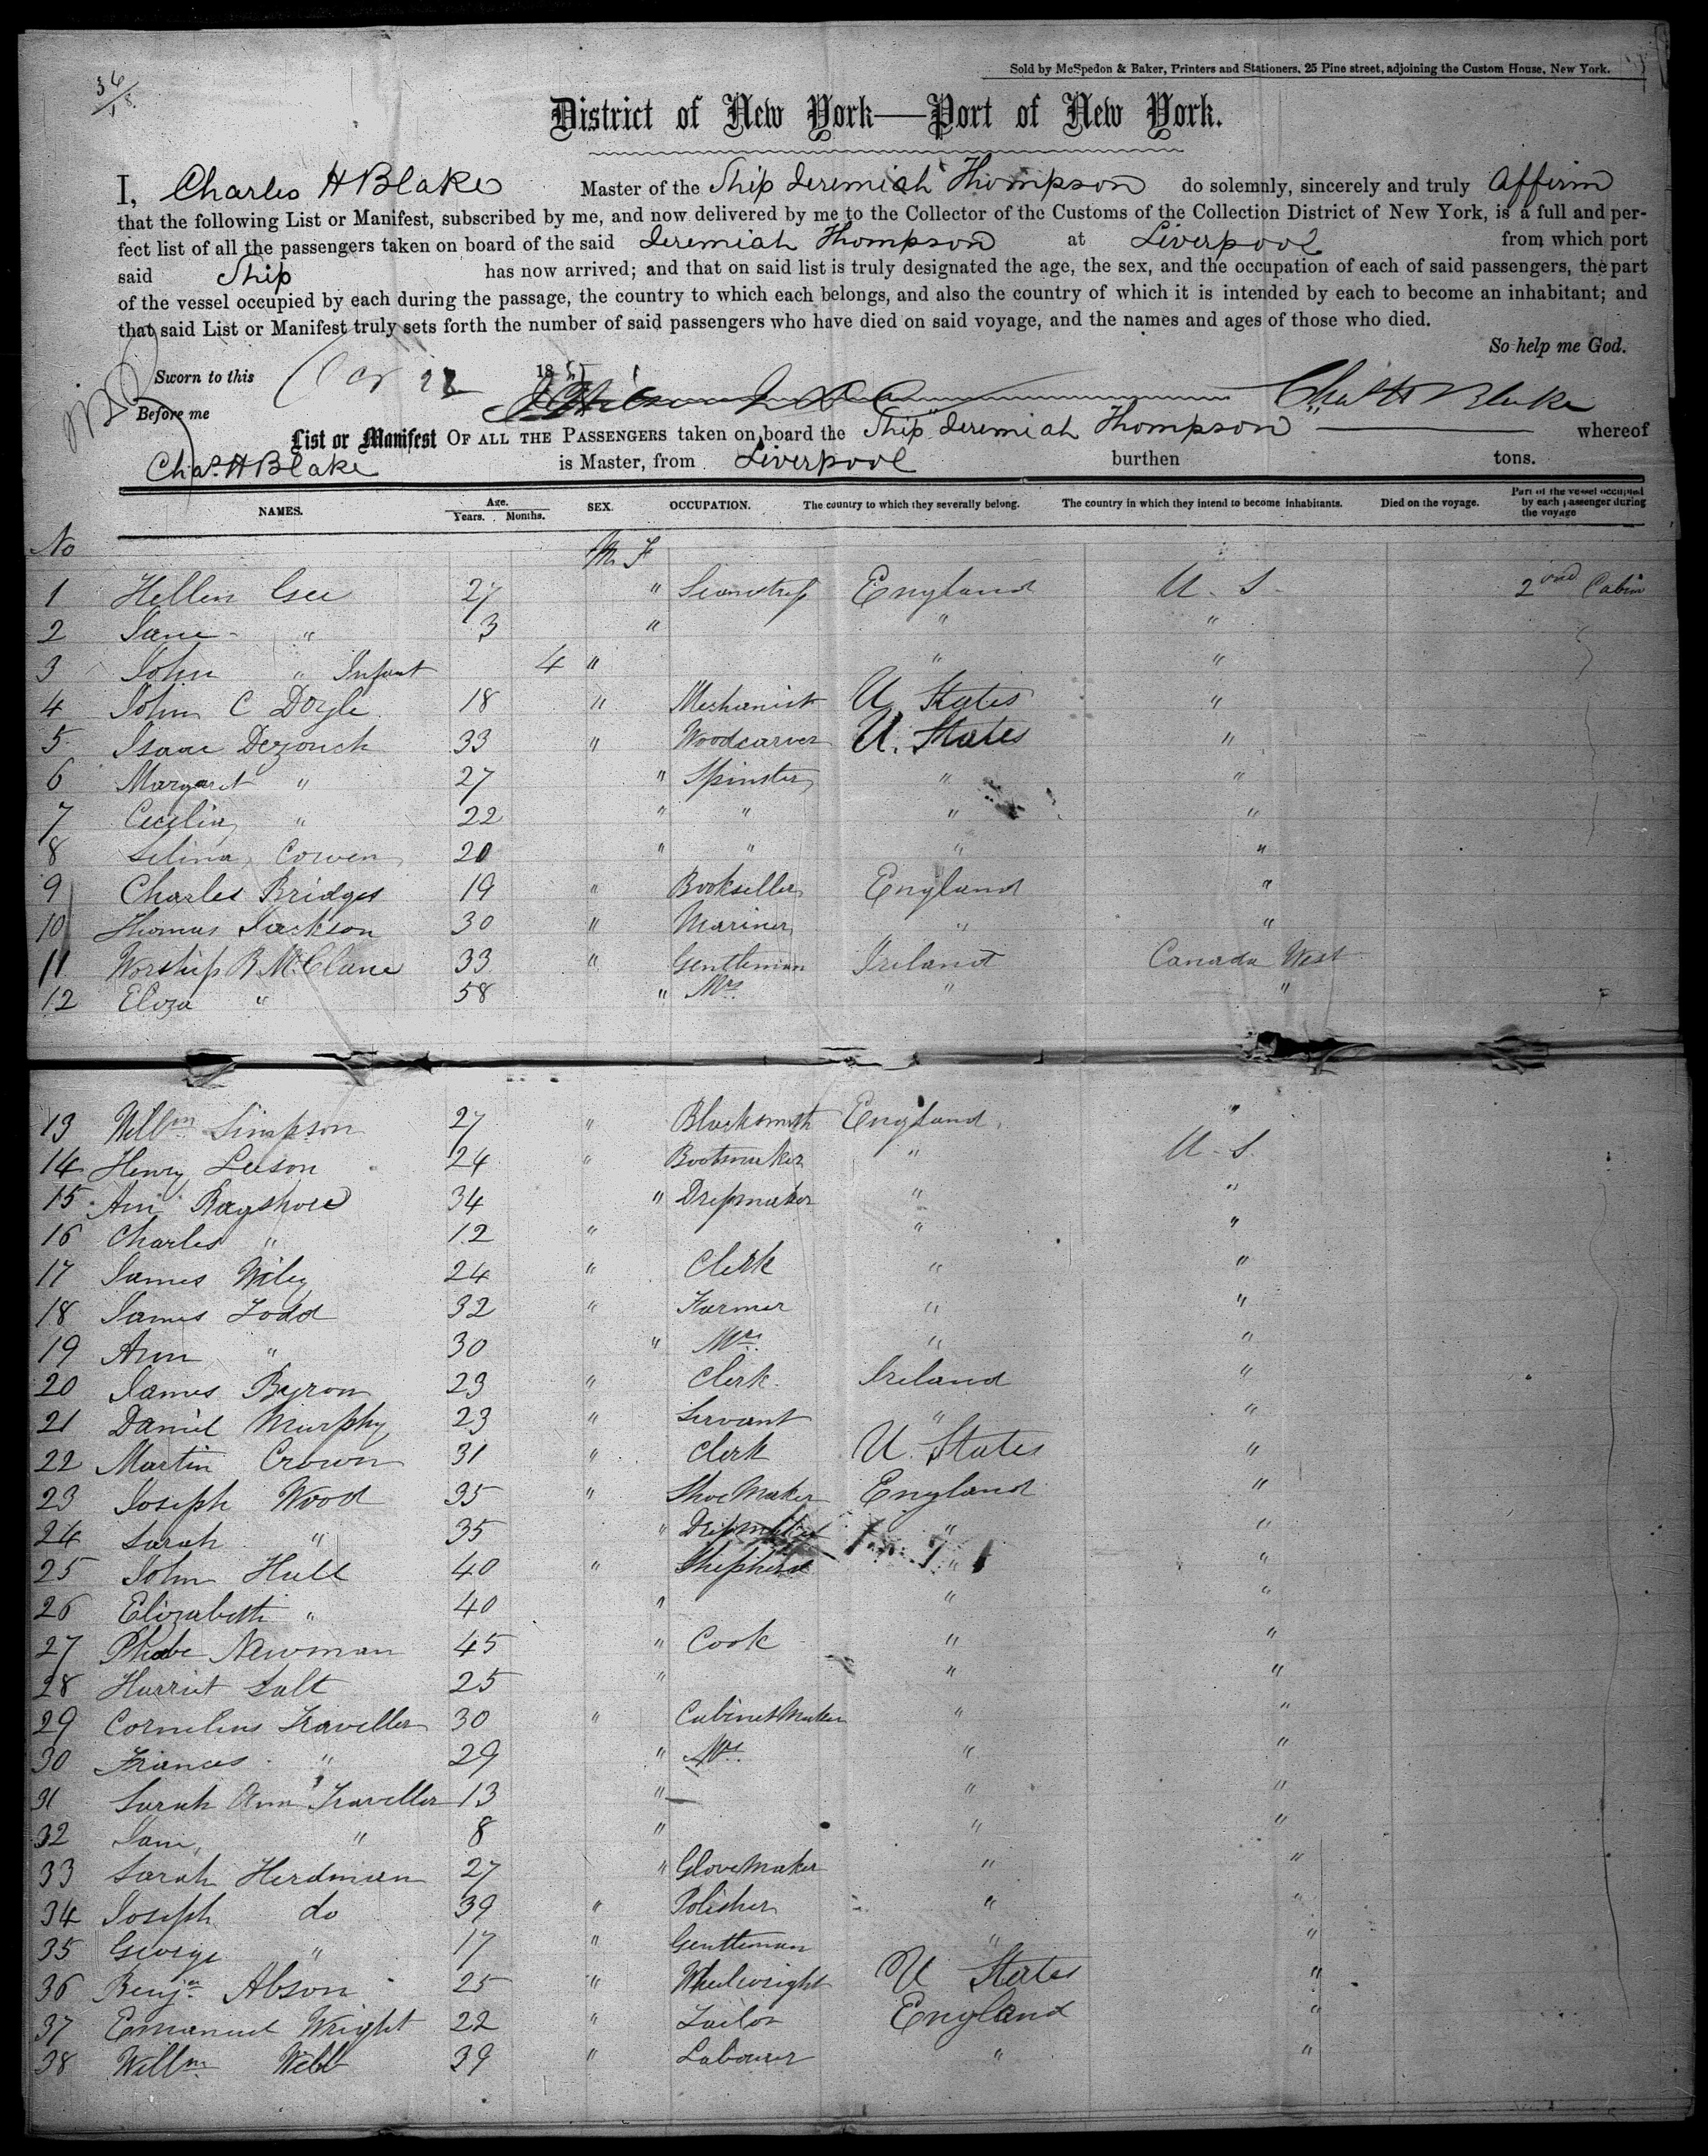 36/18.
Sold by McSpedon & Baker, Printers and Stationers, 25 Pine street, adjoining the Custom House, New York.
District of New York—Port of New York.
I, Charles H Blake Master of the Ship Jeremiah Thompson do solemnly, sincerely and truly affirm
that the following List or Manifest, subscribed by me, and now delivered by me to the Collector of the Customs of the Collection District of New York, is a full and per-
fect list of all the passengers taken on board of the said Jeremiah Thompson at Liverpool from which port
said Ship has now arrived; and that on said list is truly designated the age, the sex, and the occupation of each of said passengers, the part
of the vessel occupied by each during the passage, the country to which each belongs, and also the country of which it is intended by each to become an inhabitant; and
that said List or Manifest truly sets forth the number of said passengers who have died on said voyage, and the names and ages of those who died.
So help me God.
Sworn to this Oct 28 185
Before me Chas H Blake
List or Manifest OF ALL THE PASSENGERS taken on board the Ship Jeremiah Thompson whereof
Chas. H Blake is Master, from Liverpool burthen tons.
NAMES. Age. Years. Months. SEX. OCCUPATION. The country to which they severally belong. The country in which they intend to become inhabitants. Died on the voyage. Part of the vessel occupied by each passenger during the voyage
No M. F
1 Hellen Gee 27 " Seamstress England U. S. 2nd Cabin
2 Jane " 3 " " "
3 John " Infant 4 " " "
4 John C Doyle 18 " Mechanist U. States "
5 Isaac Dezouch 33 " Woodcarver U. States "
6 Margaret " 27 " Spinster " "
7 Cecelia " 22 " " " "
8 Selina Cowen 20 " " " "
9 Charles Bridges 19 " Bookseller England "
10 Thomas Jackson 30 " Mariner " "
11 Worship B McClane 33 " Gentleman Ireland Canada West
12 Eliza " 58 " Mrs. " "
13 Willm Simpson 27 " Blacksmith England "
14 Henry Leeson 24 " Bootmaker " U. S.
15 Ann Bagshore 34 " Dressmaker " "
16 Charles " 12 " " "
17 James Wiley 24 " Clerk " "
18 James Todd 32 " Farmer " "
19 Ann " 30 " Mrs. " "
20 James Byron 23 " Clerk Ireland "
21 Daniel Murphy 23 " Servant " "
22 Martin Crown 31 " Clerk U. States "
23 Joseph Wood 35 " Shoe Maker England "
24 Sarah " 35 " Dressmaker " "
25 John Hull 40 " Shepherd " "
26 Elizabeth " 40 " " "
27 Phebe Newman 45 " Cook " "
28 Harriet Salt 25 " " "
29 Cornelius Traveller 30 " Cabinet Maker " "
30 Frances " 29 " Mrs. " "
31 Sarah Ann Traveller 13 " " "
32 Jane " 8 " " "
33 Sarah Herdman 27 " Glove Maker " "
34 Joseph do 39 " Polisher " "
35 George " 17 " Gentleman " "
36 Benja Abson 25 " Wheelwright U States "
37 Emanuel Wright 22 " Tailor England "
38 Willm Webb 39 " Labourer " "